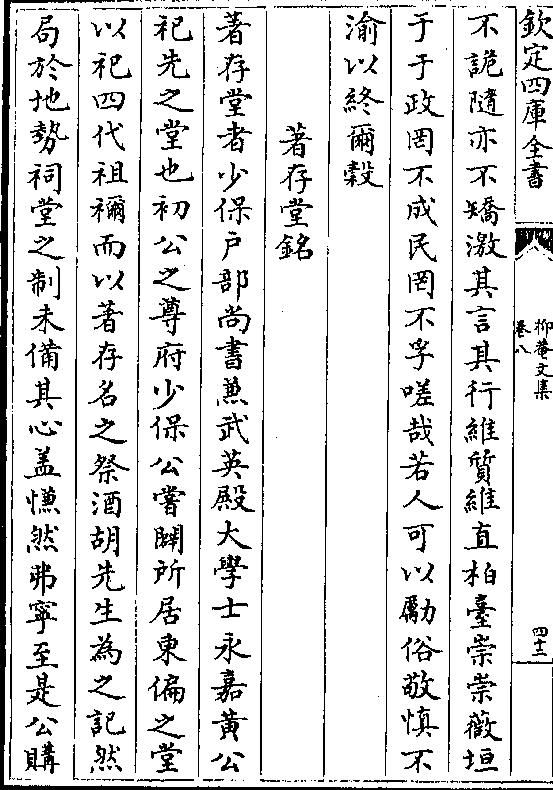 欽定四庫全書
抑菴文集
卷八
四十二
不詭隨亦不矯激其言其行維質維直柏臺崇崇薇垣
于于政罔不成民罔不孚嗟哉若人可以勵俗敬慎不
渝以終爾穀
著存堂銘
著存堂者少保户部尚書兼武英殿大學士永嘉黄公
祀先之堂也初公之尊府少保公嘗闢所居東偏之堂
以祀四代祖禰而以著存名之祭酒胡先生為之記然
局於地勢祠堂之制未備其心盖慊然弗寧至是公購